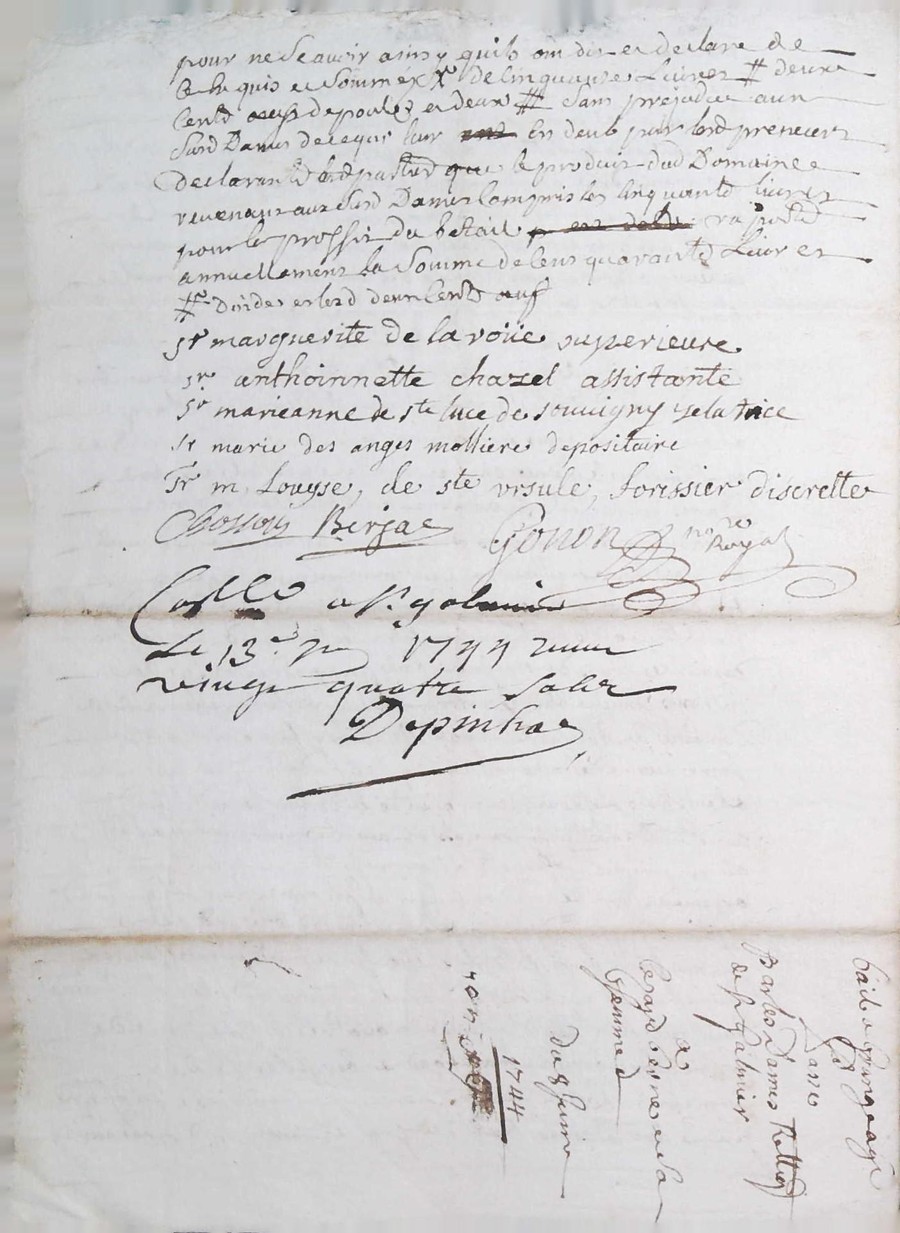 pour ne Scavoir ainsy quils ont dit et declaré de
ce Enquis et Sommés X de Cinquante Livres # deux
Cents oeufs de poules et deux # Sans prejudice aux
Susd Dames de ce qui leur en deub par lesd preneurs
Declarant lesd parties que le produit dud Domaine
revenant aux Susd Dames Compris les Cinquante livres
pour le proffit du bétail raporte
annuellement la Somme de Cent quarante Livres
# dindes et lesd deux Cents oeuf
sr marguerite de la roüe superieure
sr anthoinnette chazel assistante
sr marieanne de ste luce de souvigny zelatrice
sr marie des anges molliere depositaire
Sr m Louyse, de ste vrsule, forissier discrette
Chossois Berjac Gonon nore Royal
Conllé a St galmier
Le 13e 1744 recu
vingt quatre Sols
Depinhac
bail a grangeage
passé
par les Dames Relleg
de St Galmier
a
Benne et Sa
femme
Du 8 Juin
1744